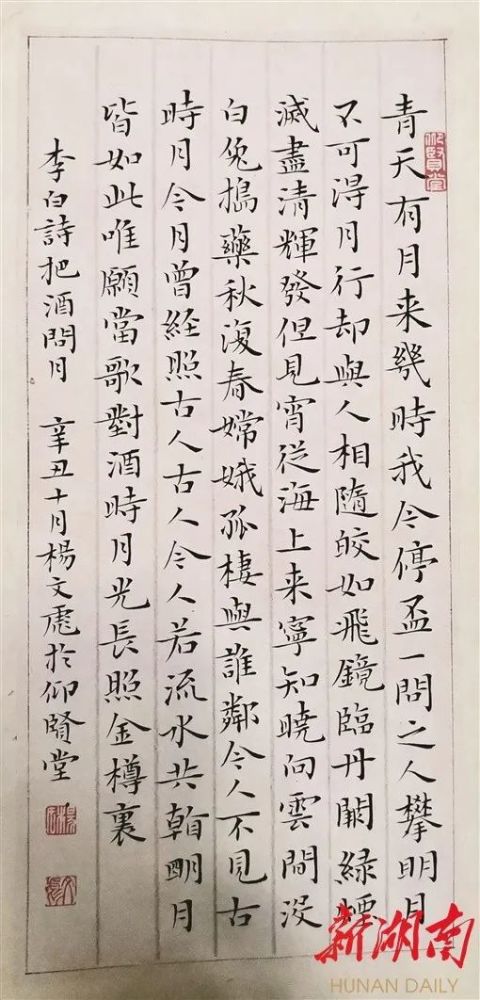 仰賢堂
青天有月来幾時我今停盃一問之人攀明月
不可得月行却與人相隨皎如飛鏡臨丹闕緑煙
滅盡清輝發但見宵從海上来寧知曉向雲間没
白兔搗藥秋復春嫦娥孤棲與誰鄰今人不見古
時月今月曾経照古人古人今人若流水共看明月
皆如此唯願當歌對酒時月光長照金樽裏
李白詩把酒問月 辛丑十月楊文虎於仰賢堂
新湖南
HUNAN DAILY